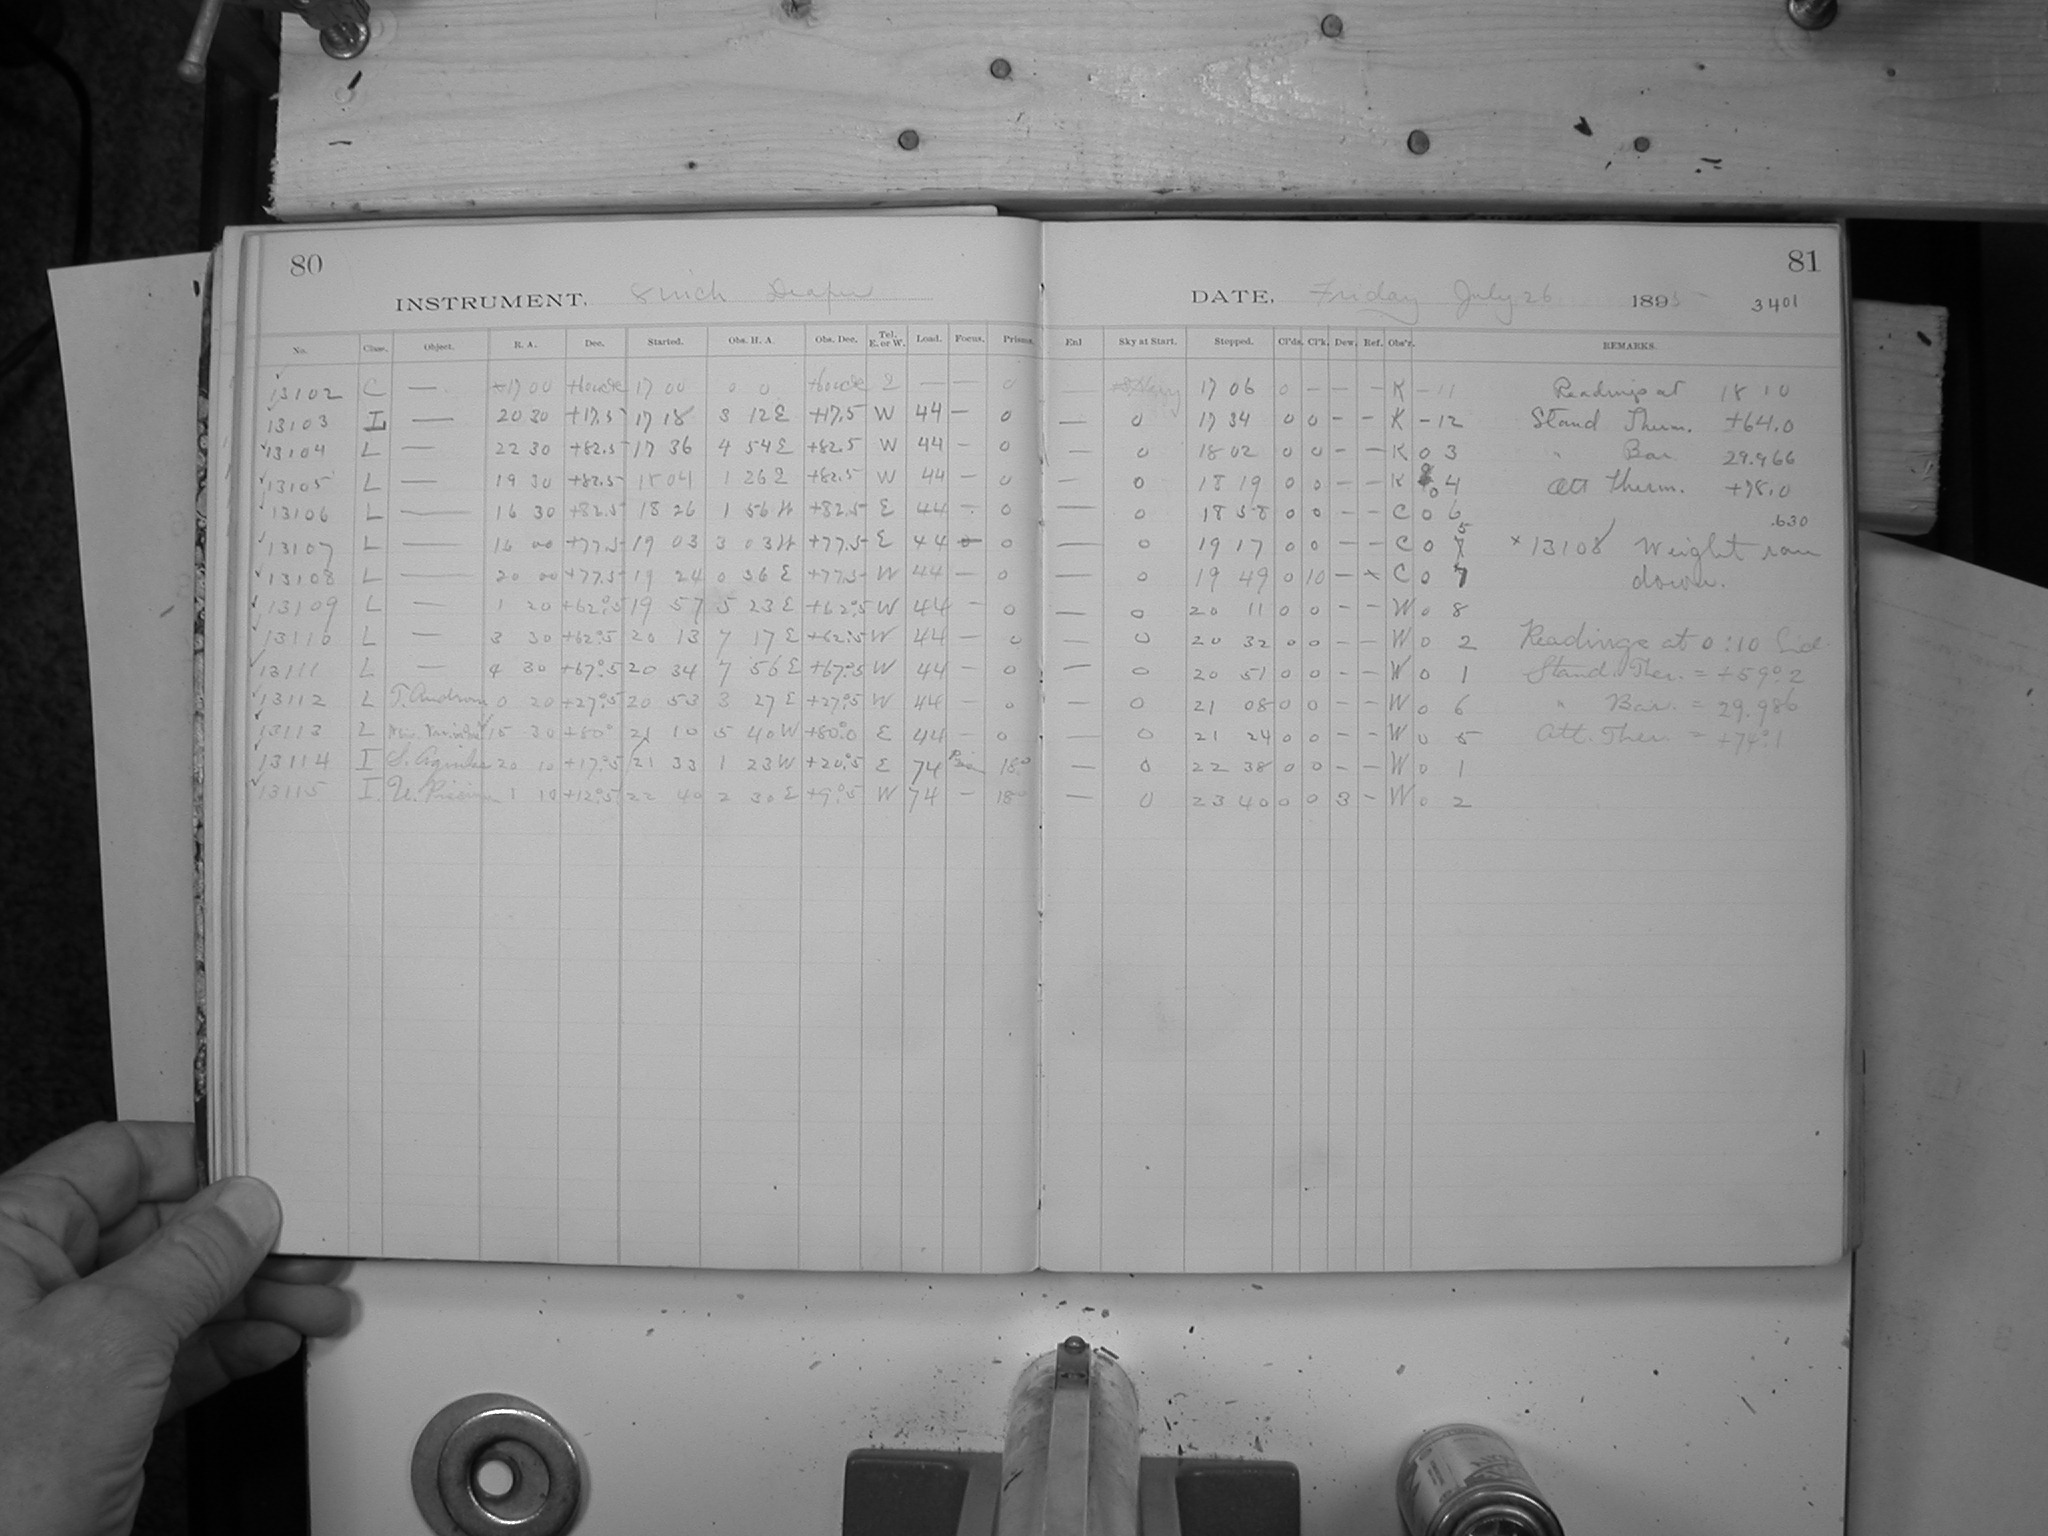 80
INSTRUMENT, 8 inch Draper
No. Class. Object. R. A. Dec. Started. Obs. H. A. Obs. Dec. Tel. E. or W. Load. Focus. Prisms.
13102 C — 17 00 17 00 0 0 — — 0
13103 I — 20 30 +17.5 17 18 3 12 E +17.5 W 44 — 0
13104 L — 22 30 +82.5 17 36 4 54 E +82.5 W 44 — 0
13105 L — 19 30 +82.5 18 04 1 26 E +82.5 W 44 — 0
13106 L — 16 30 +82.5 18 26 1 56 W +82.5 E 44 — 0
13107 L — 16 00 +77.5 19 03 3 03 W +77.5 E 44 0
13108 L — 20 00 +77.5 19 24 0 36 E +77.5 W 44 — 0
13109 L — 1 20 +62°.5 19 57 5 23 E +62°.5 W 44 — 0
13110 L — 3 30 +62°.5 20 13 7 17 E +62°.5 W 44 — 0
13111 L — 4 30 +67°.5 20 34 7 56 E +67°.5 W 44 — 0
13112 L T. Androm 0 20 +27°.5 20 53 3 27 E +27°.5 W 44 — 0
13113 L 15 30 +80° 21 10 5 40 W +80°.0 E 44 — 0
13114 I 20 10 +17°.5 21 33 1 23 W +20°.5 E 74 18°
13115 I. U. 1 10 +12°.5 22 40 2 30 E +9°.5 W 74 — 18°
81
DATE, Friday July 26 1895 3401
Enl Sky at Start. Stopped. Cl'ds. Cl'k. Dew. Ref. Obs'r. REMARKS.
— 17 06 0 — — — K — 11 Readings at 18 10
— 0 17 34 0 0 — — K — 12 Stand Therm. +64.0
— 0 18 02 0 0 — — K 0 3 " Bar 29.966
— 0 18 19 0 0 — — K 0 4 Att Therm. +78.0
— 0 18 58 0 0 — — C 0 6 .630
— 0 19 17 0 0 — — C 0 5 × 13108 Weight ran
— 0 19 49 0 10 — × C 0 7 down.
— 0 20 11 0 0 — — W 0 8
— 0 20 32 0 0 — — W 0 2 Readings at 0:10 Sid.
— 0 20 51 0 0 — — W 0 1 Stand. Ther. = +59°.2
— 0 21 08 0 0 — — W 0 6 " Bar. = 29.986
— 0 21 24 0 0 — — W 0 5 Att. Ther. = +74°.1
— 0 22 38 0 0 — — W 0 1
— 0 23 40 0 0 3 — W 0 2